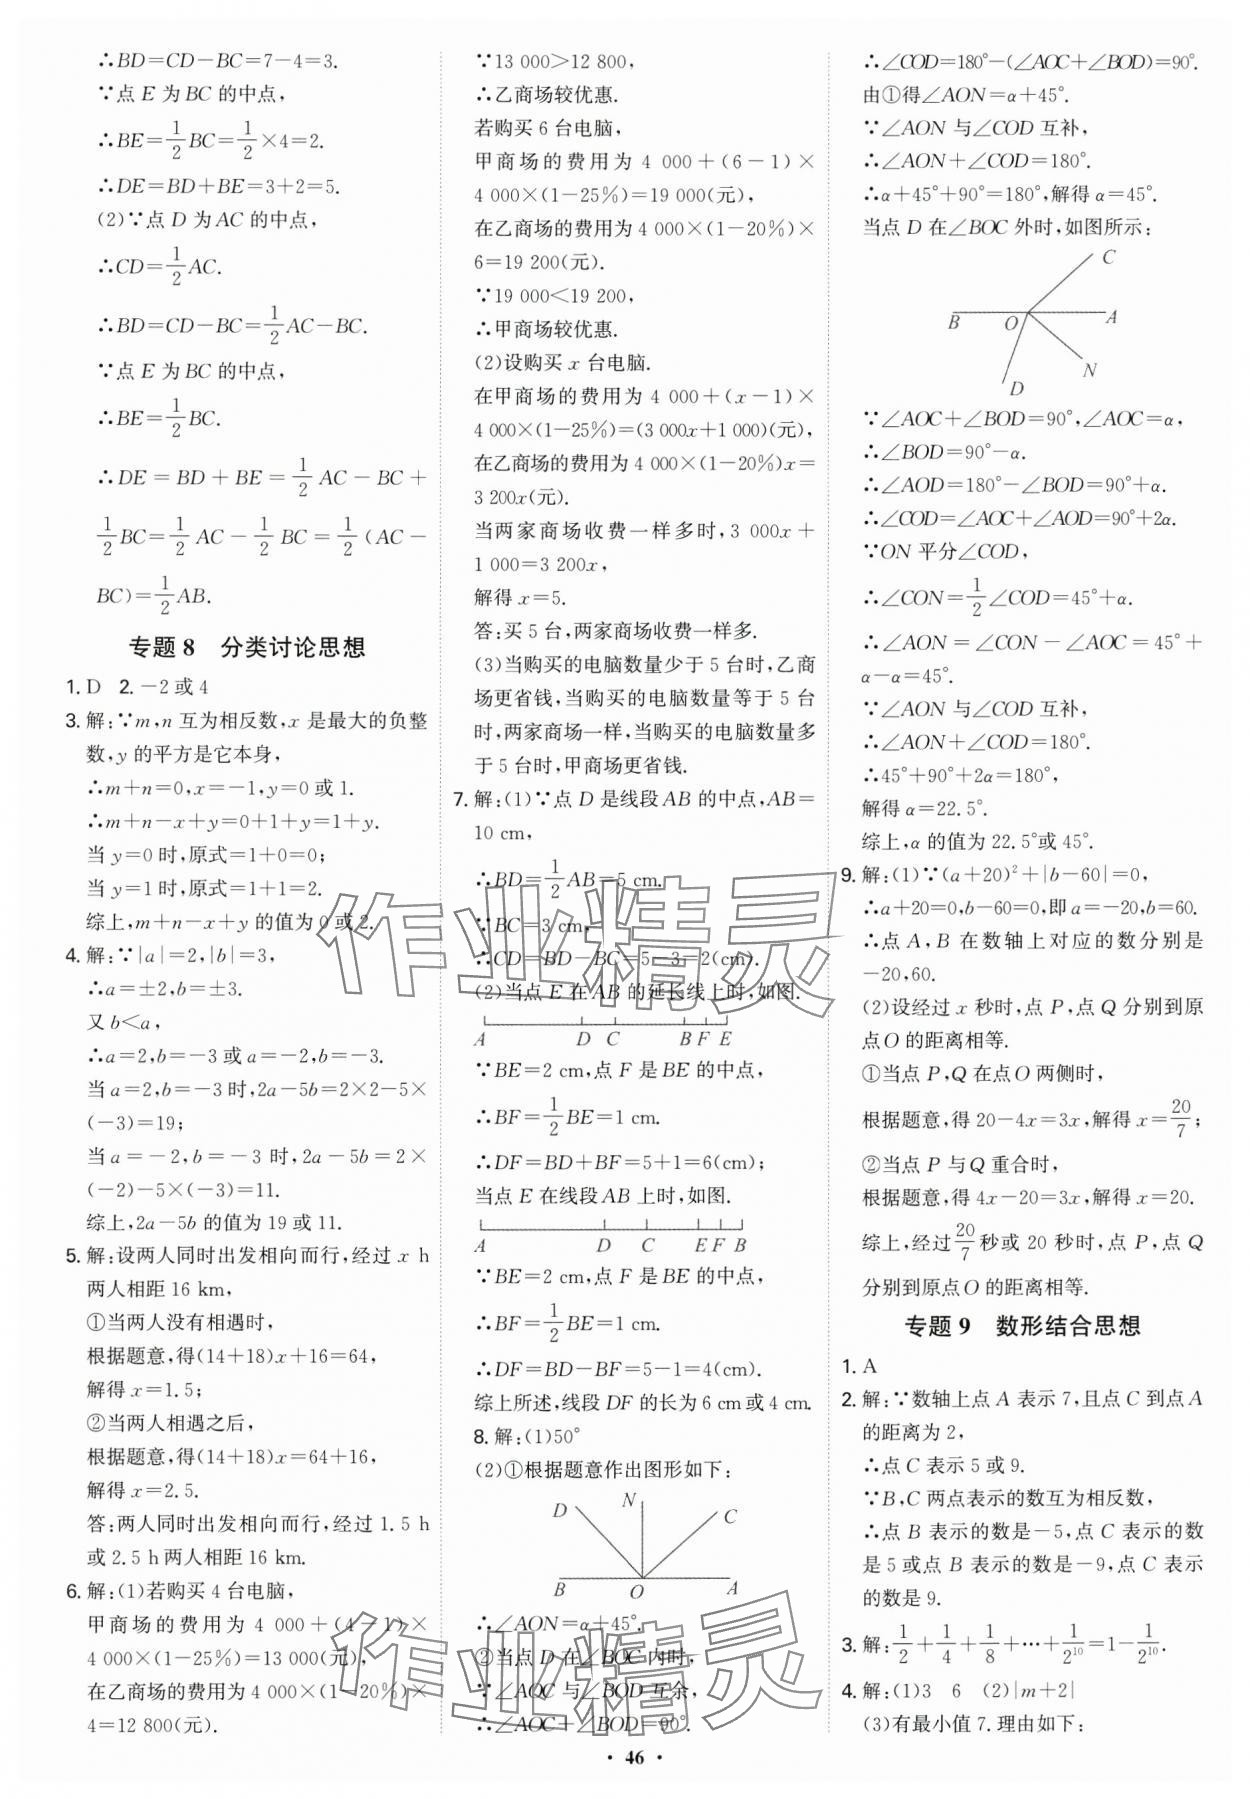 ∴BD=CD−BC=7−4=3.
∵点 E 为 BC 的中点,
∴BE=1/2BC=1/2×4=2.
∴DE=BD+BE=3+2=5.
(2)∵点 D 为 AC 的中点,
∴CD=1/2AC.
∴BD=CD−BC=1/2AC−BC.
∵点 E 为 BC 的中点,
∴BE=1/2BC.
∴DE=BD+BE=1/2AC−BC+
1/2BC=1/2AC−1/2BC=1/2(AC−
BC)=1/2AB.
专题 8 分类讨论思想
1. D 2. −2 或 4
3. 解:∵m,n 互为相反数,x 是最大的负整
数,y 的平方是它本身,
∴m+n=0,x=−1,y=0 或 1.
∴m+n−x+y=0+1+y=1+y.
当 y=0 时,原式=1+0=0;
当 y=1 时,原式=1+1=2.
综上,m+n−x+y 的值为 0 或 2.
4. 解:∵|a|=2,|b|=3,
∴a=±2,b=±3.
又 b<a,
∴a=2,b=−3 或 a=−2,b=−3.
当 a=2,b=−3 时,2a−5b=2×2−5×
(−3)=19;
当 a=−2,b=−3 时,2a−5b=2×
(−2)−5×(−3)=11.
综上,2a−5b 的值为 19 或 11.
5. 解:设两人同时出发相向而行,经过 x h
两人相距 16 km,
①当两人没有相遇时,
根据题意,得(14+18)x+16=64,
解得 x=1.5;
②当两人相遇之后,
根据题意,得(14+18)x=64+16,
解得 x=2.5.
答:两人同时出发相向而行,经过 1.5 h
或 2.5 h 两人相距 16 km.
6. 解:(1)若购买 4 台电脑,
甲商场的费用为 4 000+(4−1)×
4 000×(1−25%)=13 000(元),
在乙商场的费用为 4 000×(1−20%)×
4=12 800(元).
∵13 000>12 800,
∴乙商场较优惠.
若购买 6 台电脑,
甲商场的费用为 4 000+(6−1)×
4 000×(1−25%)=19 000(元),
在乙商场的费用为 4 000×(1−20%)×
6=19 200(元).
∵19 000<19 200,
∴甲商场较优惠.
(2)设购买 x 台电脑.
在甲商场的费用为 4 000+(x−1)×
4 000×(1−25%)=(3 000x+1 000)(元),
在乙商场的费用为 4 000×(1−20%)x=
3 200x(元).
当两家商场收费一样多时,3 000x+
1 000=3 200x,
解得 x=5.
答:买 5 台,两家商场收费一样多.
(3)当购买的电脑数量少于 5 台时,乙商
场更省钱,当购买的电脑数量等于 5 台
时,两家商场一样,当购买的电脑数量多
于 5 台时,甲商场更省钱.
7. 解:(1)∵点 D 是线段 AB 的中点,AB=
10 cm,
∴BD=1/2AB=5 cm.
∵BC=3 cm,
∴CD=BD−BC=5−3=2(cm).
(2)当点 E 在 AB 的延长线上时,如图.
A D C B F E
∵BE=2 cm,点 F 是 BE 的中点,
∴BF=1/2BE=1 cm.
∴DF=BD+BF=5+1=6(cm);
当点 E 在线段 AB 上时,如图.
A D C E F B
∵BE=2 cm,点 F 是 BE 的中点,
∴BF=1/2BE=1 cm.
∴DF=BD−BF=5−1=4(cm).
综上所述,线段 DF 的长为 6 cm 或 4 cm.
8. 解:(1)50°
(2)①根据题意作出图形如下:
D N C
B O A
∴∠AON=α+45°.
②当点 D 在∠BOC 内时,
∵∠AOC 与∠BOD 互余,
∴∠AOC+∠BOD=90°.
∴∠COD=180°−(∠AOC+∠BOD)=90°.
由①得∠AON=α+45°.
∵∠AON 与∠COD 互补,
∴∠AON+∠COD=180°.
∴α+45°+90°=180°,解得 α=45°.
当点 D 在∠BOC 外时,如图所示:
C
B O A
N
D
∵∠AOC+∠BOD=90°,∠AOC=α,
∴∠BOD=90°−α.
∴∠AOD=180°−∠BOD=90°+α.
∴∠COD=∠AOC+∠AOD=90°+2α.
∵ON 平分∠COD,
∴∠CON=1/2∠COD=45°+α.
∴∠AON=∠CON−∠AOC=45°+
α−α=45°.
∵∠AON 与∠COD 互补,
∴∠AON+∠COD=180°.
∴45°+90°+2α=180°,
解得 α=22.5°.
综上,α 的值为 22.5°或 45°.
9. 解:(1)∵(a+20)²+|b−60|=0,
∴a+20=0,b−60=0,即 a=−20,b=60.
∴点 A,B 在数轴上对应的数分别是
−20,60.
(2)设经过 x 秒时,点 P,点 Q 分别到原
点 O 的距离相等.
①当点 P,Q 在点 O 两侧时,
根据题意,得 20−4x=3x,解得 x=20/7;
②当点 P 与 Q 重合时,
根据题意,得 4x−20=3x,解得 x=20.
综上,经过20/7秒或 20 秒时,点 P,点 Q
分别到原点 O 的距离相等.
专题 9 数形结合思想
1. A
2. 解:∵数轴上点 A 表示 7,且点 C 到点 A
的距离为 2,
∴点 C 表示 5 或 9.
∵B,C 两点表示的数互为相反数,
∴点 B 表示的数是−5,点 C 表示的数
是 5 或点 B 表示的数是−9,点 C 表示
的数是 9.
3. 解:1/2+1/4+1/8+⋯+1/2¹⁰=1−1/2¹⁰.
4. 解:(1)3 6 (2)|m+2|
(3)有最小值 7. 理由如下:
· 46 ·
作业精灵
作业精灵